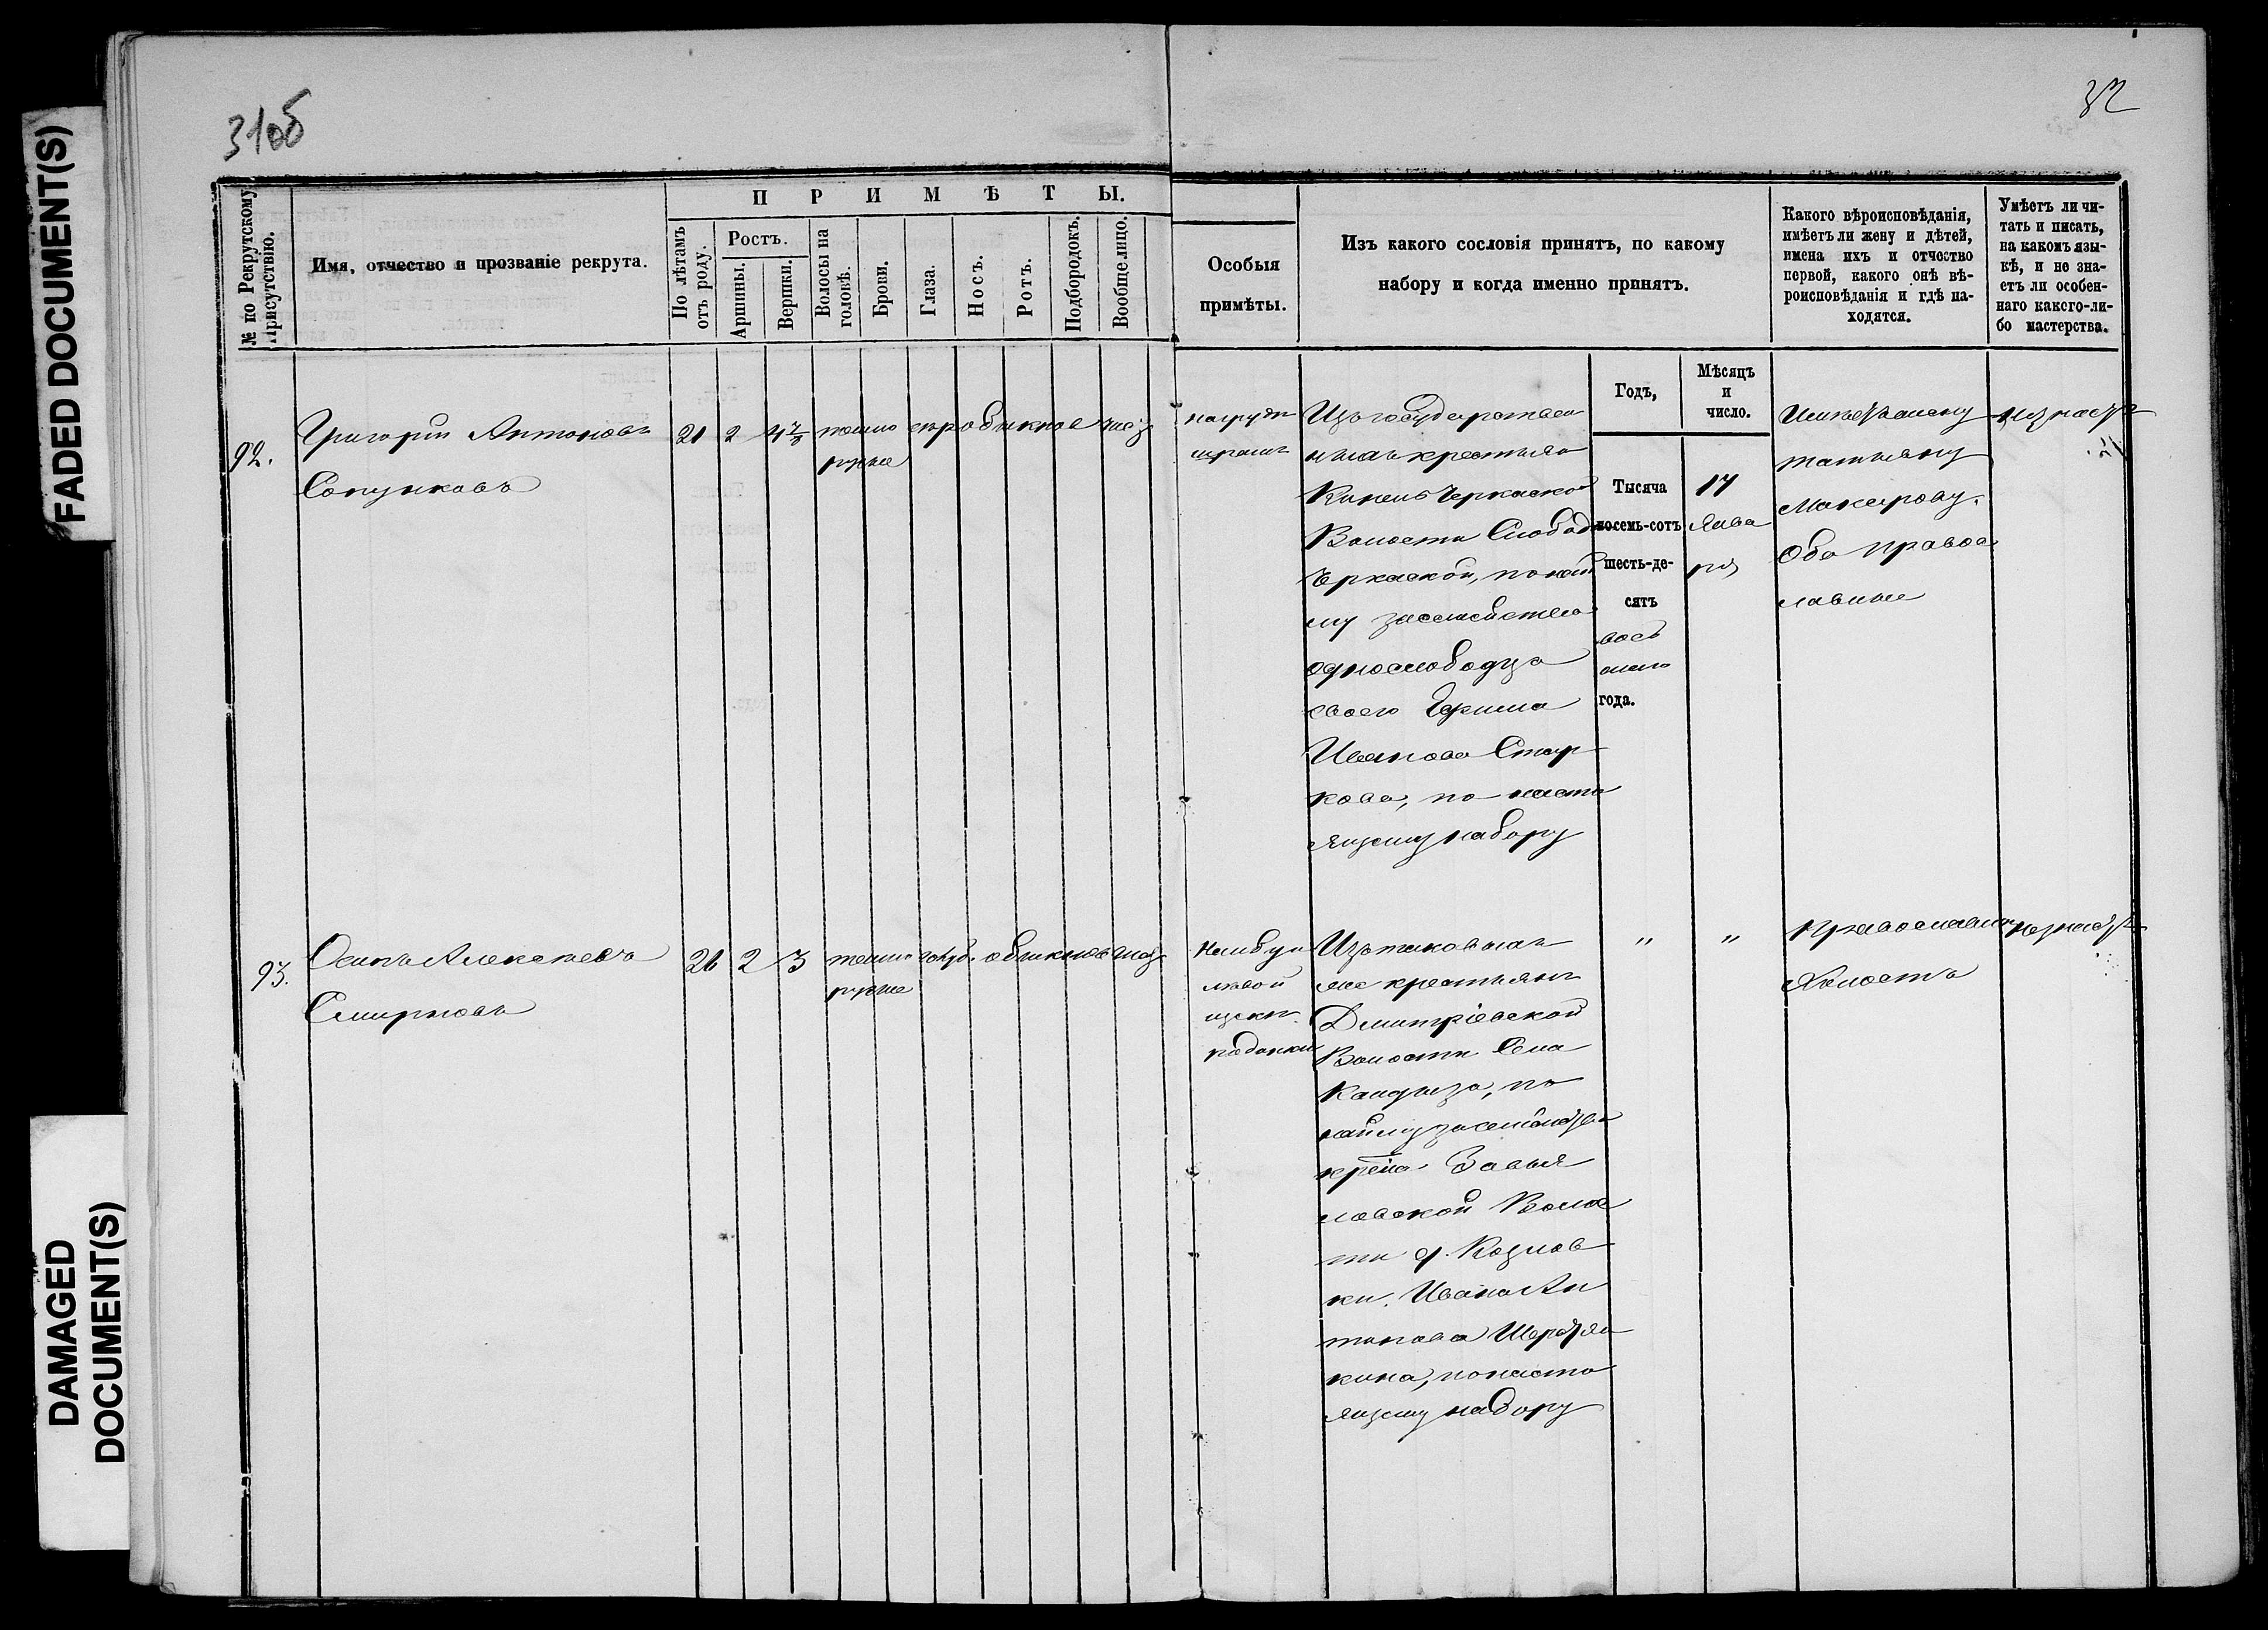 FADED DOCUMENT(S)
DAMAGED
DOCUMENT(S)
31об
32
№ по Рекрутскому
Присутствію.
Имя, отчество и прозваніе рекрута.
ПРИМѢТЫ.
По лѣтамъ
отъ роду.
Ростъ.
Аршины.
Вершки.
Волосы на
головѣ.
Брови.
Глаза.
Носъ.
Ротъ.
Подбородокъ.
Вообще лицо.
Особыя
примѣты.
Изъ какого сословія принятъ, по какому
набору и когда именно принятъ.
Какого вѣроисповѣданія,
имѣетъ ли жену и дѣтей,
имена ихъ и отчество
первой, какого онѣ вѣ-
роисповѣданія и гдѣ на-
ходятся.
Умѣетъ ли чи-
тать и писать,
на какомъ язы-
кѣ, и не зна-
етъ ли особен-
наго какого-ли-
бо мастерства.
Годъ,
Мѣсяцъ
и
число.
92.
Григорій Антоновъ
21 2 4 темно
русые
на груди
шрамъ
Изъ государствен
ныхъ крестьянъ
Кинель Черкаской
Волости Слобод
Черкаской, по най
му за семейство
однослободца
своего
Иванова Стар
кова, по насто
ящему набору
Тысяча
восемь-сотъ
шесть-де-
сятъ
вось
маго
года.
17
Янва
ря
Имѣетъ жену
Татьяну
Макарову.
Оба правос
лавные
93.
Осипъ Алексѣевъ
Смирновъ
21 2 3 темно голуб. обыкнов
русые
лѣвой
щекѣ
родинки
Изъ таковыхъ
же крестьянъ
Дмитріевской
Волости Села
Кандыза, по
найму за семейство
Завья
ловской Волос
ти д. Козлов
ки. Ивана Ан
тонова
кина, по насто
ящему набору
" "
Православный
Холостъ